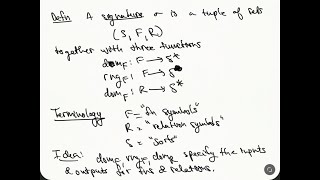 Defn: A signature σ is a tuple of sets
(S, F, R)
together with three functions
dom_F: F → S*
rng_F: F → S
dom_R: R → S*
Terminology F = "fn symbols"
R = "relation symbols"
S = "sorts"
Idea: dom_F, rng_F, dom_R specify the inputs
& outputs for fns & relations.